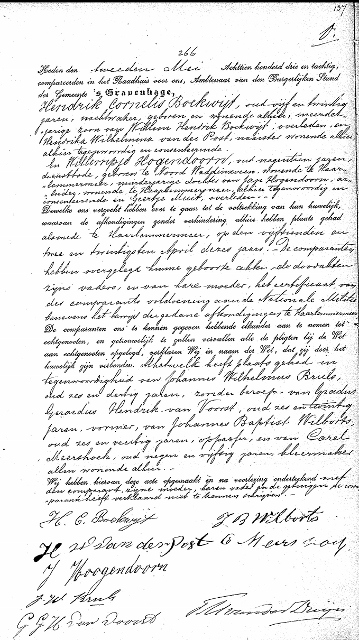 157
266
Heden den tweeden Mei Achttien honderd drie en tachtig,
compareerden in het Raadhuis voor ons, Ambtenaar van den Burgerlijken Stand
der Gemeente 's Gravenhage,
Hendrik Cornelis Boekwijt, oud vijf en twintig
jaren, geboren en wonende alhier, meerder-
jarige zoon van Willem Hendrik Boekwijt, overleden, en
Hendrika Wilhelmina van der Post, wonende
alhier tegenwoordig en consenteerende
En Willempje Hogendoorn, oud negentien jaren,
dienstbode, geboren te wonende te Haar-
lemmermeer, minderjarige dochter van Jaap Hogendoorn,
wonende te Haarlemmermeer, alhier tegenwoordig en
consenteerende en Geertje overleden
Dewelke ons verzocht hebben over te gaan tot de voltrekking van hun huwelijk,
waarvan de afkondigingen zonder verhindering alhier hebben plaats gehad
alsmede te Haarlemmermeer, op den vijftienden en
twee en twintigsten April dezes jaars. De comparanten
hebben overgelegd hunne geboorte akten, de doodakten
zijns vaders, en van hare moeder, het certificaat van
des comparants voldoening aan de Nationale Militie
benevens het bewijs der gedane afkondigingen te Haarlemmermeer
De comparanten ons te kennen gegeven hebbende elkander aan te nemen tot
echtgenooten, en getrouwelijk te zullen vervullen alle de pligten bij de Wet
aan echtgenooten opgelegd, verklaren Wij in naam der Wet, dat zij door het
huwelijk zijn verbonden. Al hetwelk heeft plaats gehad in
tegenwoordigheid van Johannes Wilhelmus Bruls,
oud zes en dertig jaren, zonder beroep, van Gradus
Gerardus Hendrik van Voorst, oud zes en twintig
jaren, vormer, van Johannes Baptist Wilborts,
oud zes en veertig jaren, oppasser, en van Carel
Meershoek, oud negen en vijftig jaren, kleermaker
allen wonende alhier.
Wij hebben hiervan deze akte opgemaakt en na voorlezing onderteekend met
den comparant, zijne moeder, haren vader en de getuigen, de com-
parante heeft verklaard niet te kunnen schrijven.
H. C. Boekwijt
J B Wilborts
H W van der Post
C Meershoek
J Hoogendoorn
J W Bruls
G G H van Voorst